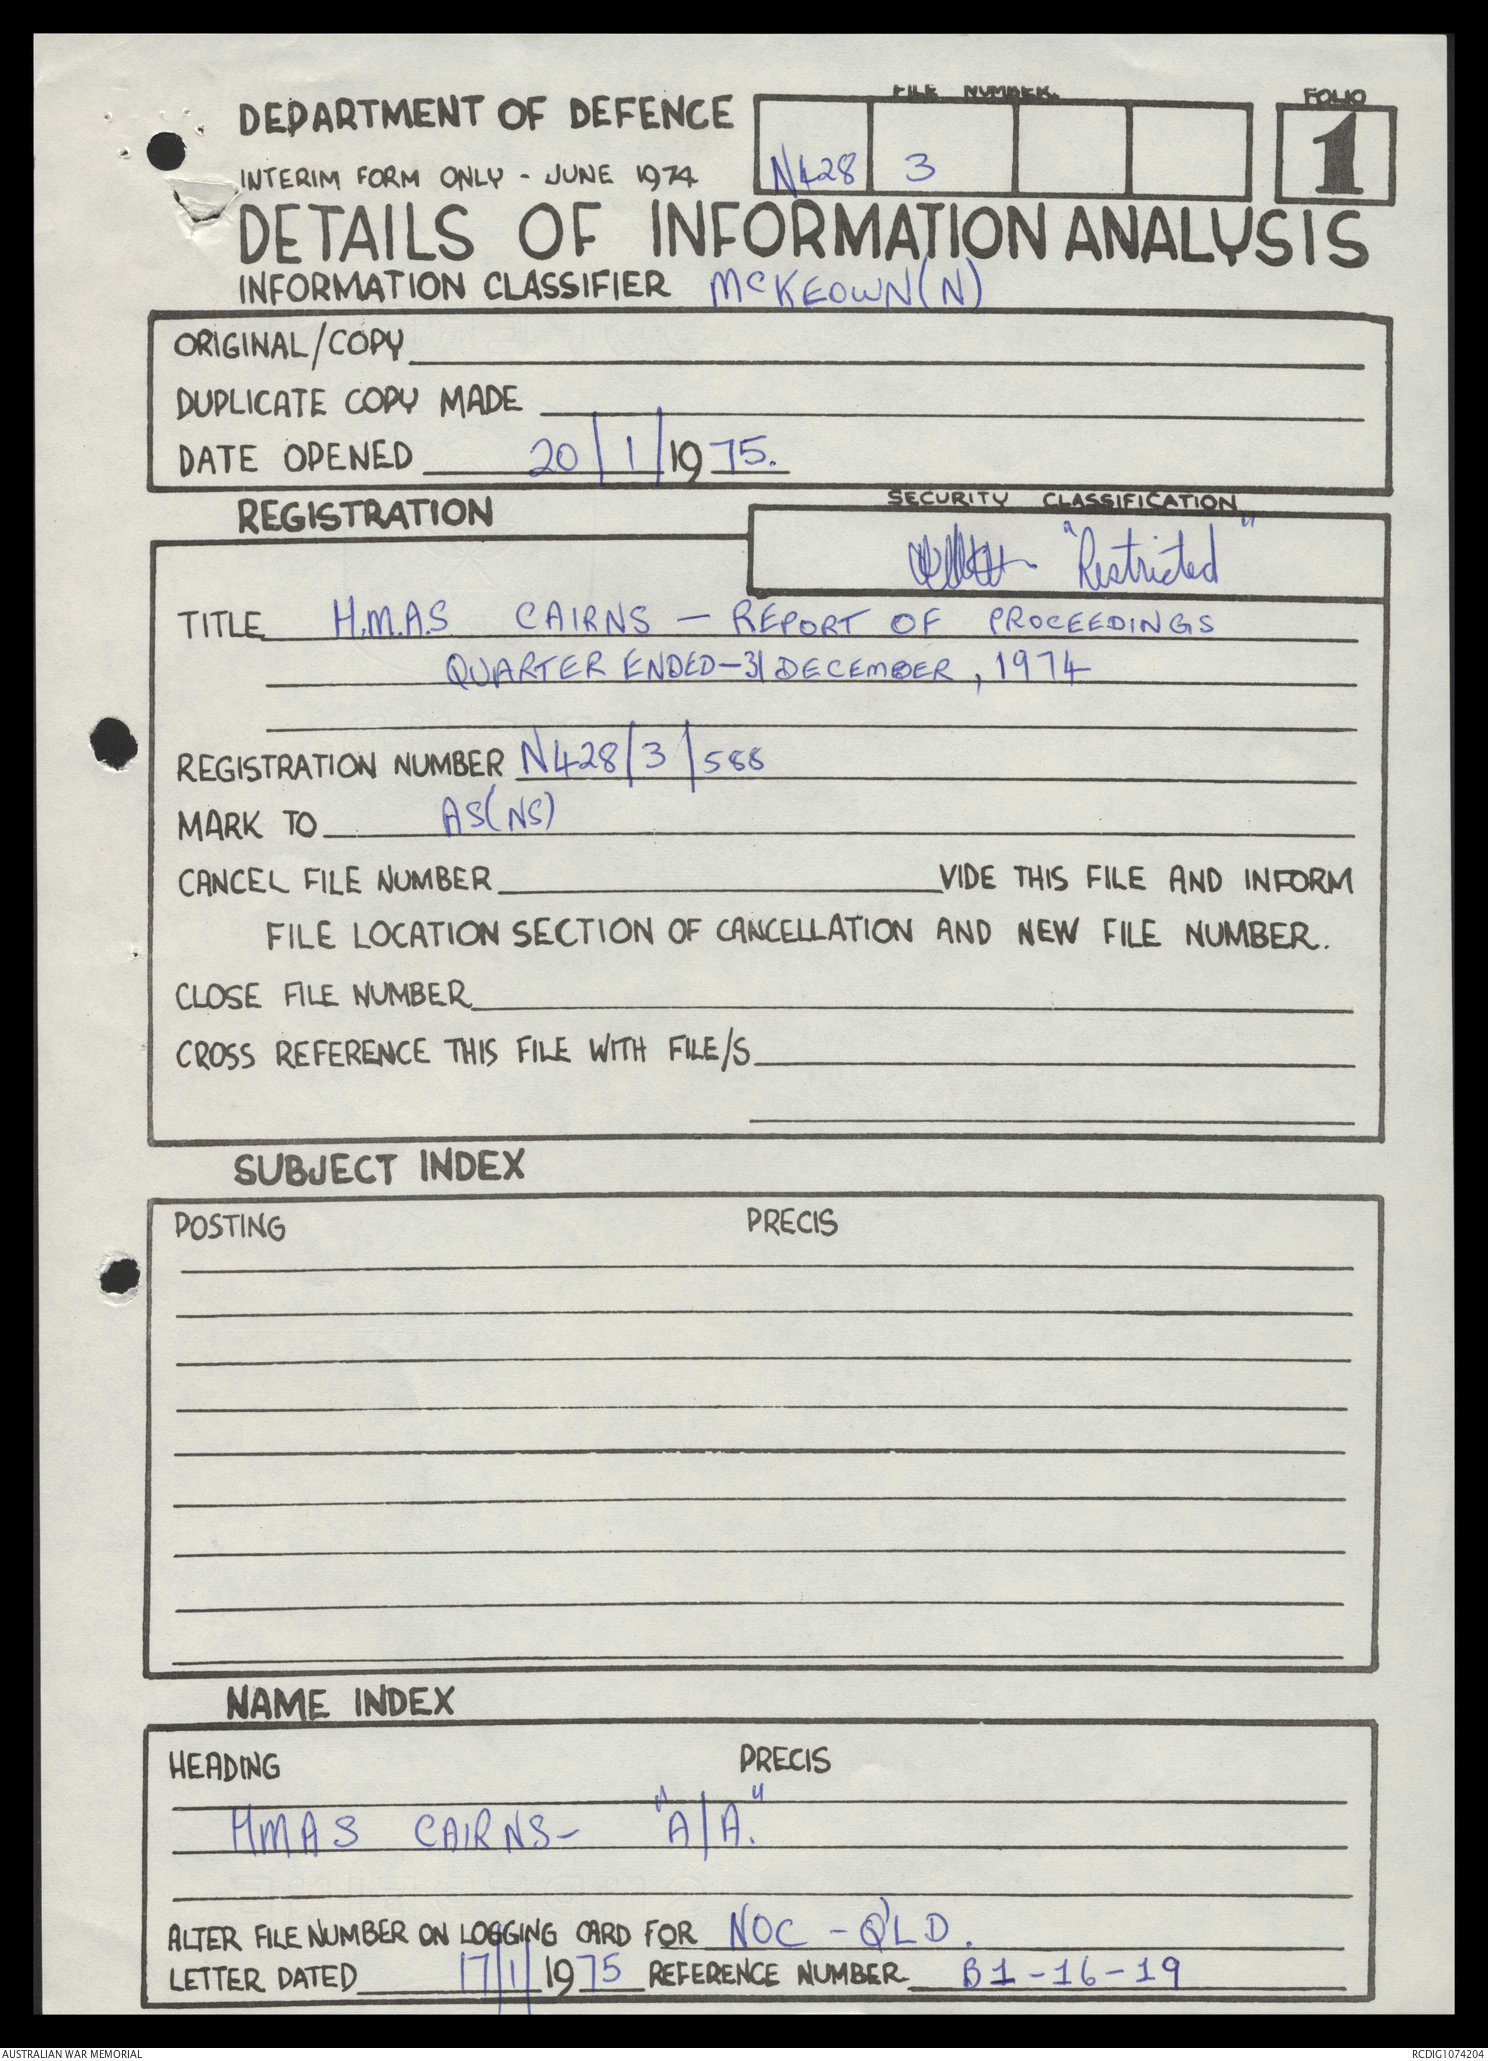 DEPARTMENT OF DEFENCE
FILE NUMBER.
FOLIO
N428 3
1
INTERIM FORM ONLY - JUNE 1974
DETAILS OF INFORMATION ANALYSIS
INFORMATION CLASSIFIER McKEOWN(N)
ORIGINAL/COPY
DUPLICATE COPY MADE
DATE OPENED 20/1/1975.
REGISTRATION
SECURITY CLASSIFICATION
"Restricted"
TITLE H.M.A.S CAIRNS - REPORT OF PROCEEDINGS
QUARTER ENDED-31 DECEMBER, 1974
REGISTRATION NUMBER N428/3/588
MARK TO AS(NS)
CANCEL FILE NUMBER VIDE THIS FILE AND INFORM
FILE LOCATION SECTION OF CANCELLATION AND NEW FILE NUMBER.
CLOSE FILE NUMBER
CROSS REFERENCE THIS FILE WITH FILE/S
SUBJECT INDEX
POSTING PRECIS
NAME INDEX
HEADING PRECIS
HMAS CAIRNS- "A/A."
ALTER FILE NUMBER ON LOGGING CARD FOR NOC - Q'LD.
LETTER DATED 17/1/1975 REFERENCE NUMBER B1-16-19
AUSTRALIAN WAR MEMORIAL
RCDIG1074204